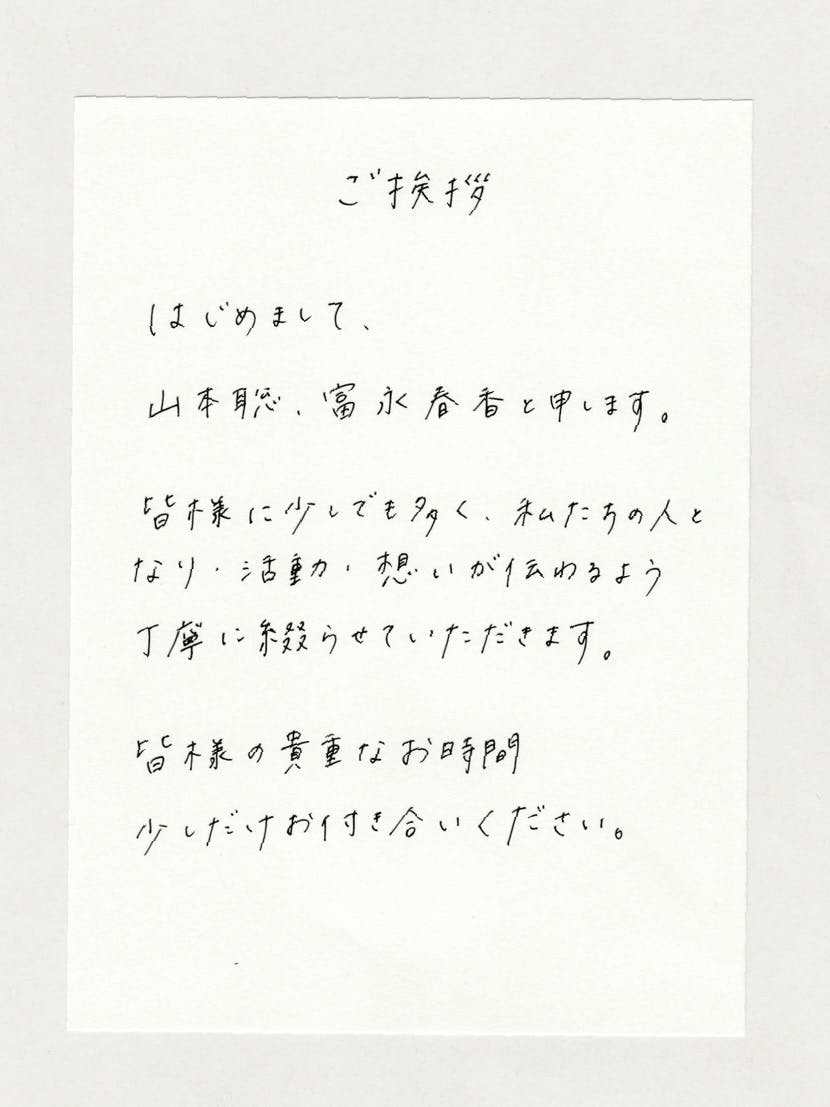 ご挨拶
はじめまして、
山本聡、富永春香と申します。
皆様に少しでも多く、私たちの人と
なり・活動・想いが伝わるよう
丁寧に綴らせていただきます。
皆様の貴重なお時間
少しだけお付き合いください。